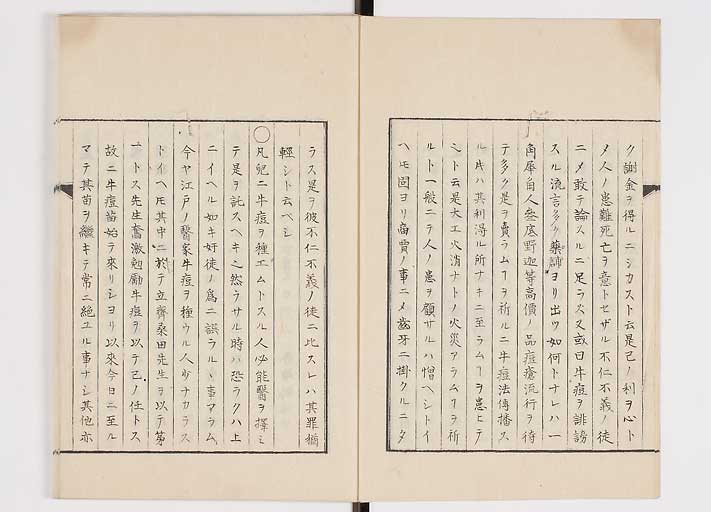 ク謝金ヲ得ルニシカスト云是己ノ利ヲ心ト
メ人ノ患難死亡ヲ意トセザル不仁不義ノ徒
ニメ敢テ論スルニ足ラス又或曰牛痘ヲ誹謗
スル流言多ク藥舗ヨリ出ツ如何トナレハ一
角犀角人參底野迦等高價ノ品痘瘡流行ヲ待
テ多ク是ヲ賣ラムヿヲ祈ルニ牛痘法傳播ス
ルハ其利得ル所ナキニ至ラムヿヲ患ヒテ
ミト云是大工火消ナトノ火災アラムヿヲ祈
ルト一般ニテ人ノ患ヲ顧サルハ憎ヘシトイ
ヘ𪜈固ヨリ商賈ノ事ニメ齒牙ニ掛クルニタ
ラス是ヲ彼不仁不義ノ徒ニ比スレハ其罪猶
輕シト云ベシ
○凡兒ニ牛痘ヲ種エムトスル人必能醫ヲ擇ミ
テ是ヲ託スヘキ之然ラサル時ハ恐ラクハ上
ニイヘル如キ奸徒ノ爲ニ誤ラルヽ事アラム
今ヤ江戸ノ醫家牛痘ヲ種ウル人少ナカラス
トイヘ𪜈其中ニ於テ立齊桑田先生ヲ以テ第
一トス先生奮激勉勵牛痘ヲ以テ己ノ任トス
故ニ牛痘苗始テ來リシヨリ以來今日ニ至ル
マテ其苗ヲ繼キテ常ニ絶ユル事ナシ其他亦